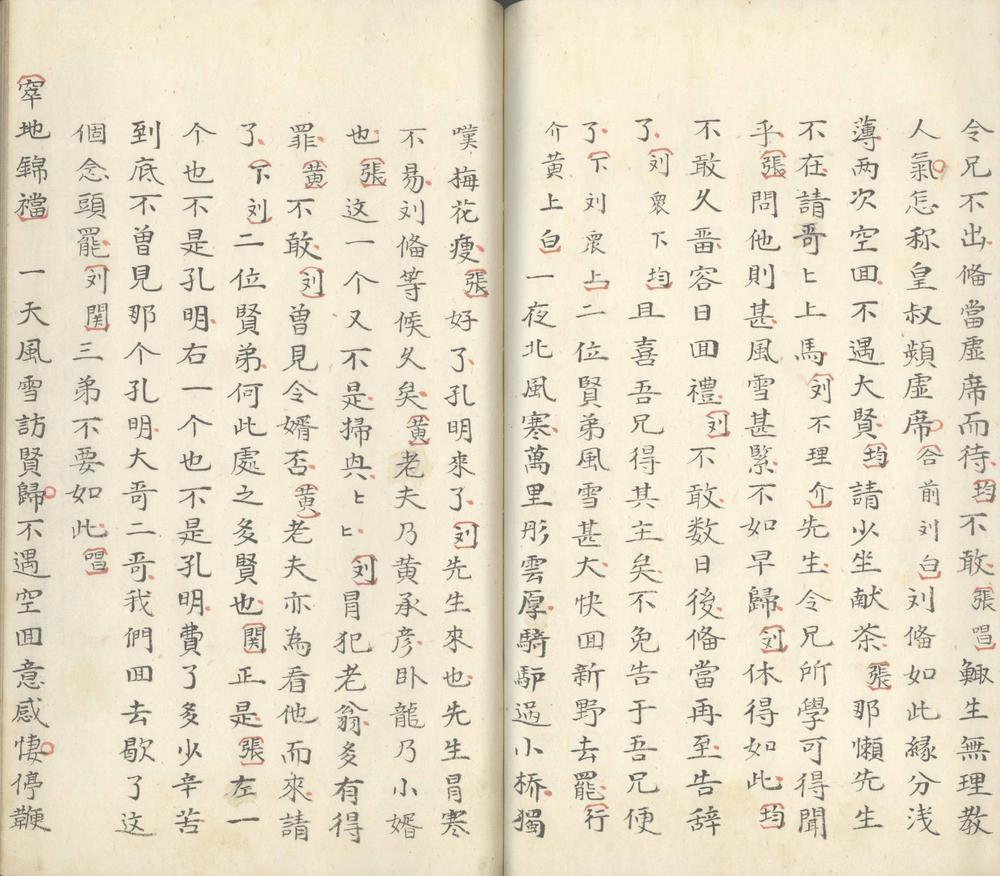 令兄不出俻當虛席而待均不敢張唱鯫生無理教
人氣怎称皇叔頻虛席合前刘白刘俻如此緣分浅
薄两次空囬不遇大賢均請少坐献茶張那懶先生
不在請哥匕上馬刘不理介先生令兄所學可得聞
乎張問他則甚風雪甚緊不如早歸刘休得如此均
不敢久畱容日囬禮刘不敢数日後俻當再至告辞
了刘眾下均且喜吾兄得其主矣不免告于吾兄便
了下刘眾上二位賢弟風雪甚大快囬新野去罷行
介黄上白一夜北風寒萬里彤雲厚騎馿過小桥獨
嘆梅花瘦張好了孔明來了刘先生來也先生冒寒
不易刘俻等候久矣黄老夫乃黄承彦卧龍乃小婿
也張这一个又不是掃㒷匕匕刘冒犯老翁多有得
罪黄不敢刘曾見令婿否黄老夫亦為看他而來請
了下刘二位賢弟何此處之多賢也関正是張左一
个也不是孔明右一个也不是孔明費了多少辛苦
到底不曽見那个孔明大哥二哥我們囬去歇了这
個念頭罷刘関三弟不要如此唱
窣地錦襠一天風雪訪賢歸不遇空囬意感悽停鞭